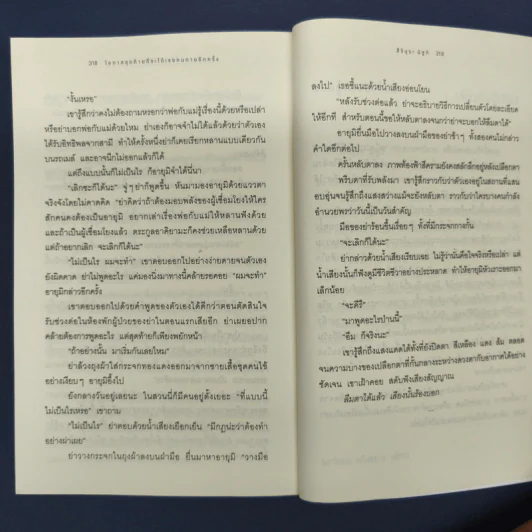 318 โอกาสสุดท้ายที่จะได้เจอคนตายอีกครั้ง
"งั้นเหรอ"
เขารู้สึกว่าคงไม่ต้องถามหรอกว่าพ่อกับแม่รู้เรื่องนี้ด้วยหรือเปล่า
หรือย่าบอกพ่อกับแม่ด้วยไหม ย่าเองก็อาจจำไม่ได้แล้วด้วยว่าตัวเอง
ได้รับอิทธิพลจากสามี ทำให้ครั้งหนึ่งย่าก็เคยเรียกหลานแบบเดียวกัน
บนรถเมล์ และอาจนึกไม่ออกแล้วก็ได้
แต่ถึงแบบนั้นก็ไม่เป็นไร ก็อายุมิจำได้นี่นา
"เลิกซะก็ได้นะ" จู่ๆ ย่าก็พูดขึ้น หันมามองอายุมิด้วยแววตา
จริงจังโดยไม่คาดคิด "ย่าคิดว่าถ้าต้องมอบพลังของผู้เชื่อมโยงให้ใคร
สักคนคงต้องเป็นอายุมิ อยากเล่าเรื่องพ่อกับแม่ให้หลานฟังด้วย
และถ้าเป็นผู้เชื่อมโยงแล้ว ตระกูลอาคิยามะก็คงช่วยเหลือหลานด้วย
แต่ถ้าอยากเลิก จะเลิกก็ได้นะ"
"ไม่เป็นไร ผมจะทำ" เขาตอบออกไปอย่างง่ายดายจนตัวเอง
ยังผิดคาด ย่าไม่พูดอะไร แค่มองนิ่งมาทางนี้คล้ายรอคอย "ผมจะทำ"
อายุมิกล่าวอีกครั้ง
เขาตอบออกไปด้วยคำพูดของตัวเองได้ดีกว่าตอนตัดสินใจ
รับช่วงต่อในห้องพักผู้ป่วยของย่าในตอนแรกเสียอีก ย่าเผยอปาก
คล้ายต้องการพูดอะไร แต่สุดท้ายก็เพียงพยักหน้า
"ถ้าอย่างนั้น มาเริ่มกันเลยไหม"
ย่าล้วงถุงผ้าใส่กระจกทองแดงออกมาจากชายเสื้อชุดคนไข้
อย่างเงียบๆ อายุมิอึ้งไป
ยังกลางวันอยู่เลยนะ ในสวนนี้ก็มีคนอยู่ตั้งเยอะ "ที่แบบนี้
ไม่เป็นไรเหรอ" เขาถาม
"ไม่เป็นไร" ย่าตอบด้วยน้ำเสียงเยือกเย็น "มีกฎน่ะว่าต้องทำ
อย่างผ่าเผย"
ย่าวางกระจกในถุงผ้าลงบนฝ่ามือ ยื่นมาหาอายุมิ "วางมือ
319
ลงไป" เธอชี้แนะด้วยน้ำเสียงอ่อนโยน
"หลังรับช่วงต่อแล้ว ย่าจะอธิบายวิธีการเปลี่ยนตัวโดยละเอียด
ให้อีกที สำหรับตอนนี้ขอให้หลับตาลงจนกว่าย่าจะบอกให้ลืมตาได้"
อายุมิยื่นมือไปวางลงบนฝ่ามือของย่าช้าๆ ทั้งสองคนไม่กล่าว
คำใดอีกต่อไป
ครั้นหลับตาลง ภาพท้องฟ้าสีครามยังคงสลักลึกอยู่หลังเปลือกตา
พริบตาที่รับพลังมา เขารู้สึกราวกับว่าตัวเองอยู่ในสถานที่แสน
อบอุ่นจนรู้สึกถึงแสงสว่างแม้จะยังหลับตา ราวกับว่าใครบางคนกำลัง
อำนวยพรว่าวันนี้เป็นวันสำคัญ
มือของย่าร้อนขึ้นเรื่อยๆ ทั้งที่มีกระจกกางกั้น
"จะเลิกก็ได้นะ"
ย่ากล่าวด้วยน้ำเสียงเรียบเฉย ไม่รู้ว่านั่นคือใจจริงหรือเปล่า แต่
น้ำเสียงนั้นก็ฟังดูมีชีวิตชีวาอย่างประหลาด ทำให้อายุมิหัวเราะออกมา
เล็กน้อย
"มาพูดอะไรป่านนี้"
"อืม ก็จริงนะ"
เขารู้สึกถึงแสงแดดได้ทั้งที่ยังปิดตา สีเหลือง แดง ส้ม ตลอด
จนความบางของเปลือกตาที่กั้นกลางระหว่างดวงตากับอากาศได้อย่าง
ชัดเจน เขาเฝ้าคอย สดับฟังเสียงสัญญาณ
ลืมตาได้แล้ว เสียงนั้นร้องบอก